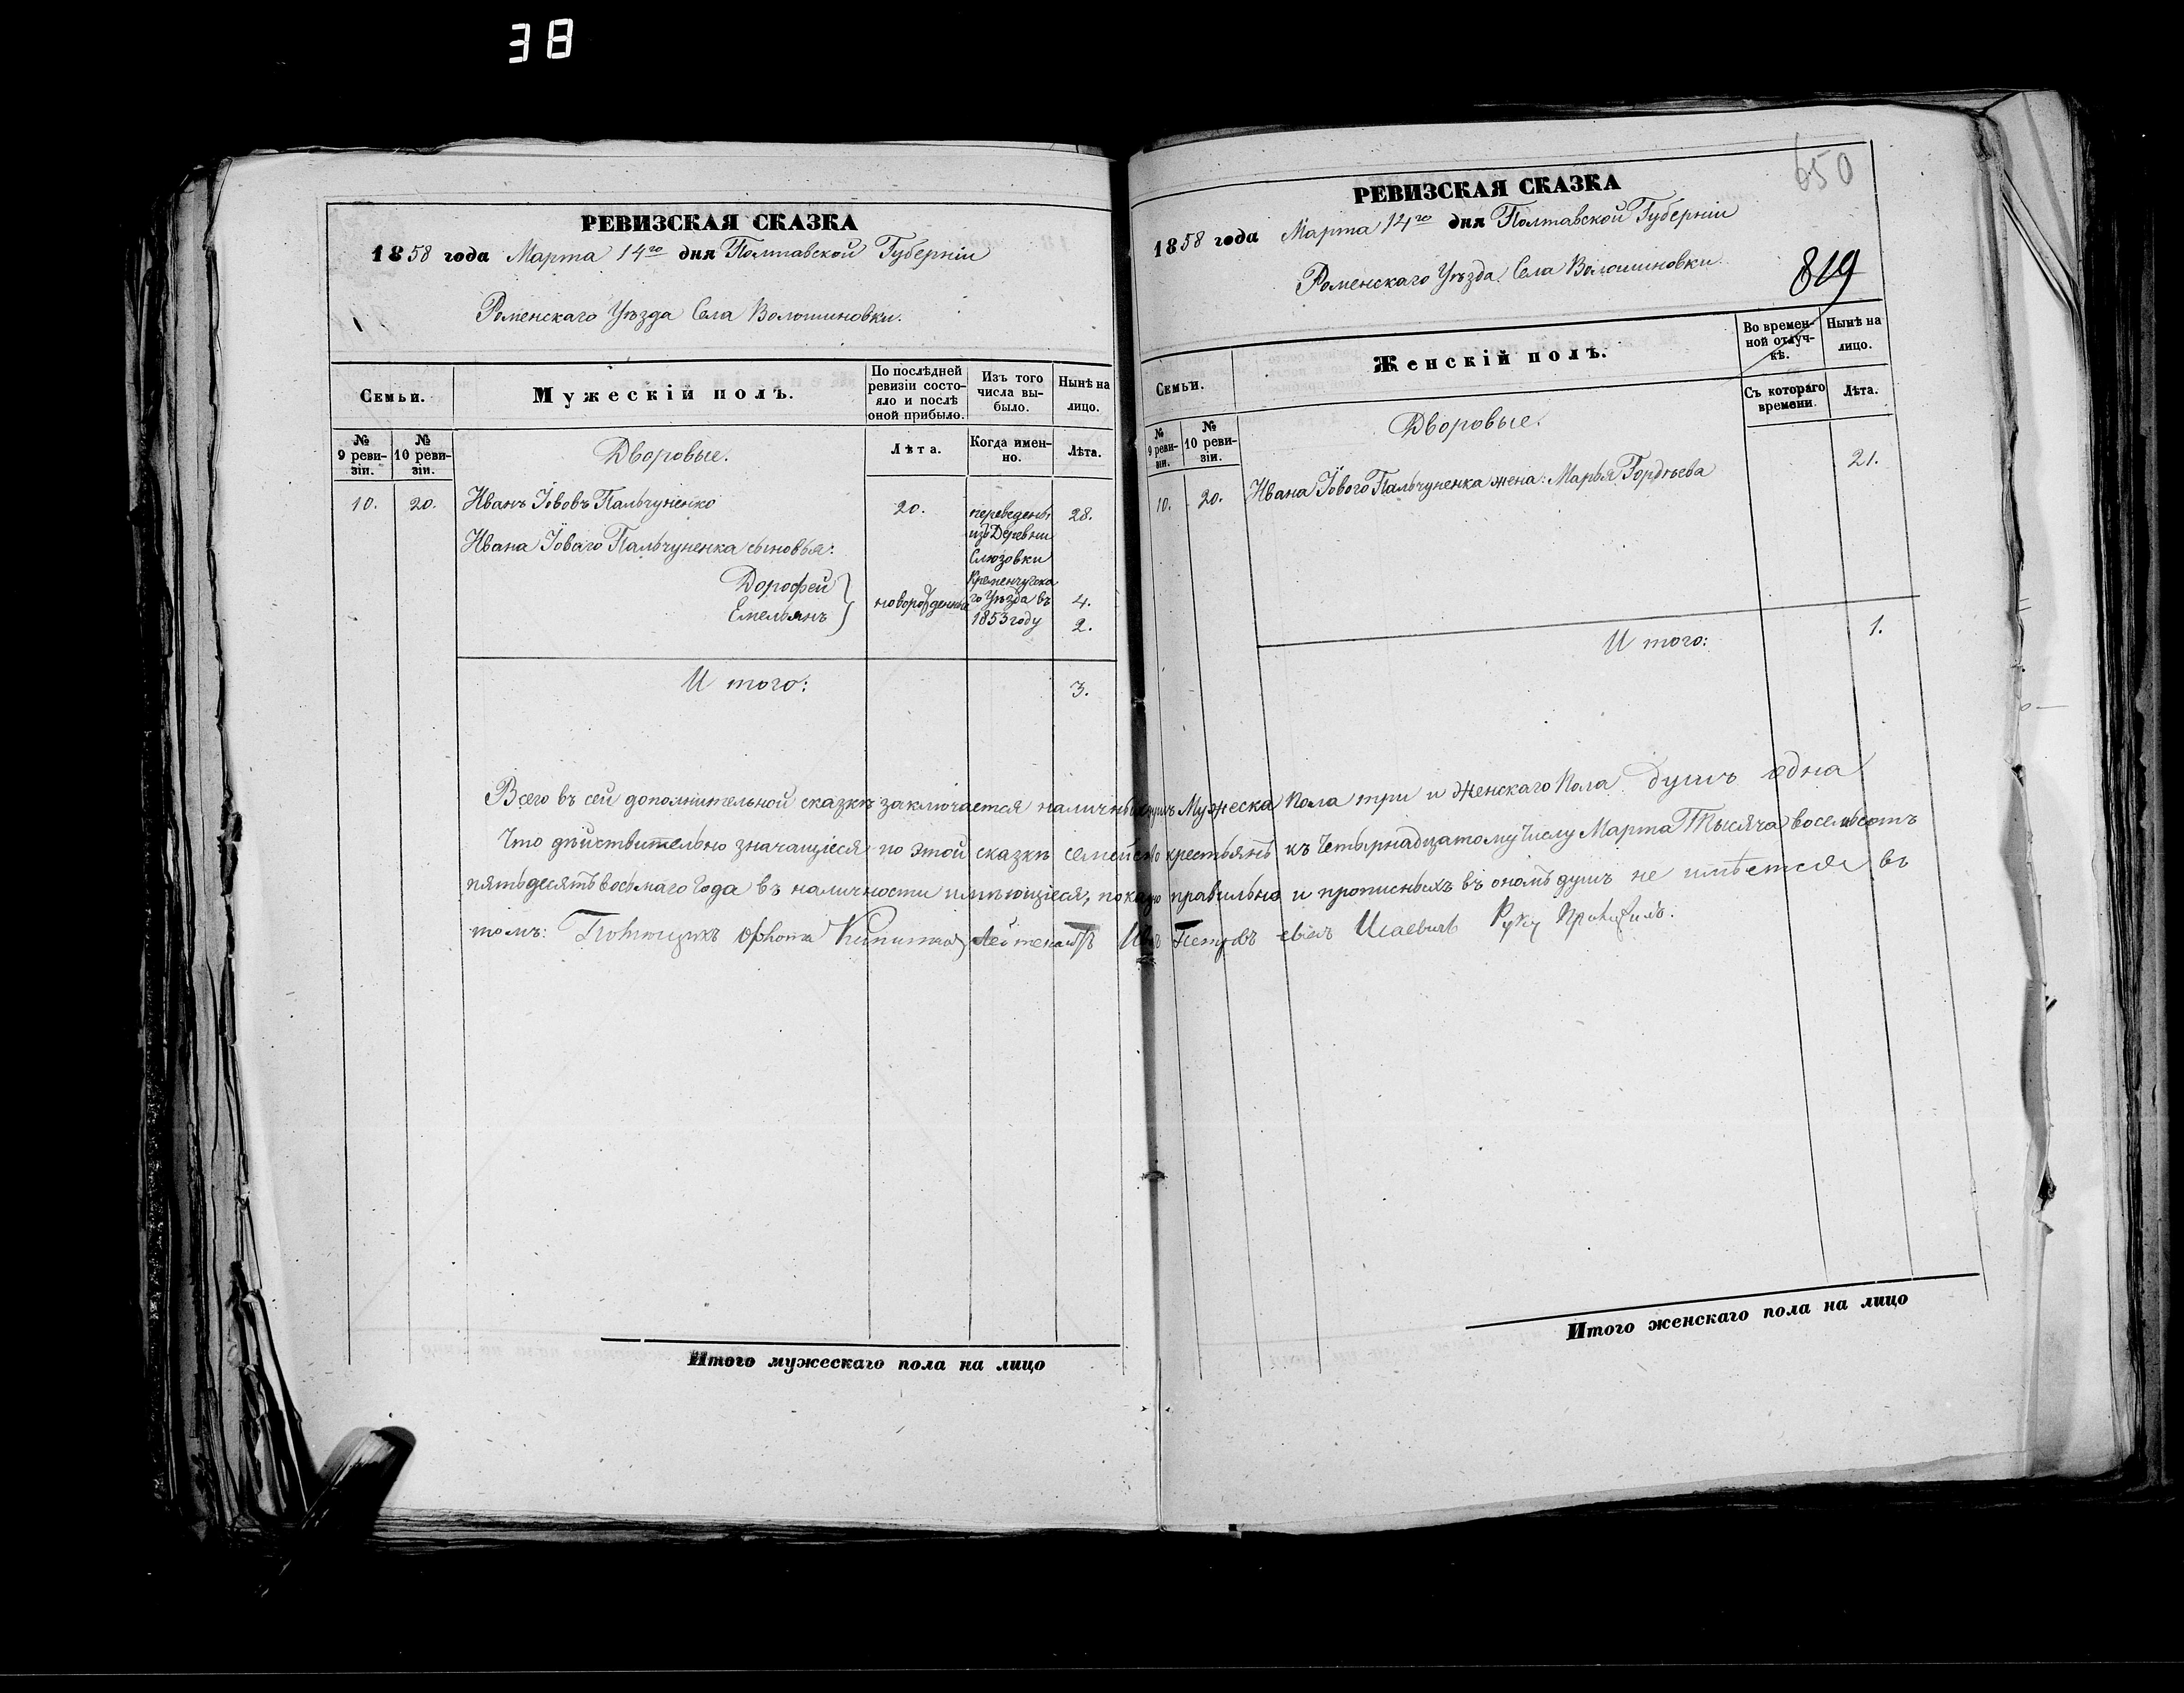 38
РЕВИЗСКАЯ СКАЗКА
1858 года Марта 14го дня Полтавской Губерніи
Роменскаго Уѣзда Села Волошиновки.
Семьи.
Мужескій полъ.
По послѣдней
ревизіи состо-
яло и послѣ
оной прибыло.
Изъ того
числа вы-
было.
Нынѣ на
лицо.
№
9 реви-
зіи.
№
10 реви-
зіи.
Дворовые.
Лѣта.
Когда имен-
но.
Лѣта.
10. 20. Иванъ Іововъ Пальчуненко 20. переведены 28.
изъ Деревни
Ивана Іоваго Пальчуненка сыновья:
Слюзовки
Дорофей
Кременчугска
новорожденны го Уѣзда въ 4.
Емельянъ 1853 году 2.
И того: 3.
Итого мужескаго пола на лицо
650
РЕВИЗСКАЯ СКАЗКА
1858 года Марта 14го дня Полтавской Губерніи
Роменскаго Уѣзда Села Волошиновки
819
Семьи.
Женскій полъ.
Во времен-
ной отлуч-
кѣ.
Нынѣ на
лицо.
№
9 реви-
зіи.
№
10 реви-
зіи.
Дворовые.
Съ котораго
времени.
Лѣта.
10. 20. Ивана Іового Пальчуненка жена: Марья Гордѣева 21.
И того: 1.
Всего въ сей дополнительной сказкѣ заключается наличныхъ душъ Мужеска Пола три и Женскаго Пола душъ одна
Что дѣйствительно значащіеся по этой сказкѣ семейство крестьянъ къ Четырнадцатому Числу Марта Тысяча восемьсотъ
пятьдесятъ восьмаго Года въ наличности имѣющіеся, показую правильно и прописныхъ въ ономъ душъ не имѣется въ
томъ: Петровъ Исаевичъ Руку Приложилъ.
Итого женскаго пола на лицо